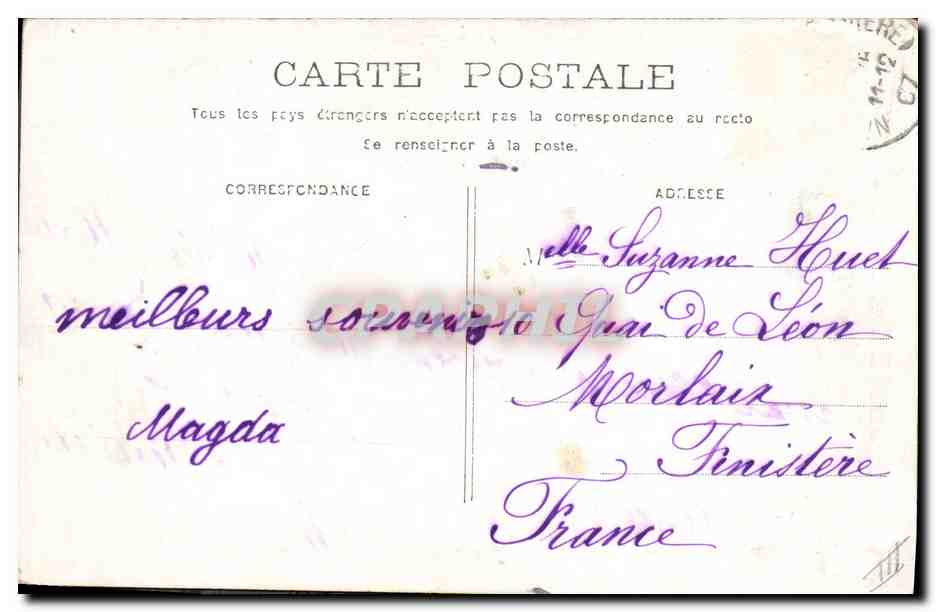 CARTE POSTALE
Tous les pays étrangers n'acceptent pas la correspondance au recto
Se renseigner à la poste.
CORRESPONDANCE
ADRESSE
meilleurs souvenirs
Magda
Melle Suzanne Huet
10 Quai de Léon
Morlaix
Finistère
France
CPAPHIL
11-12
07
III